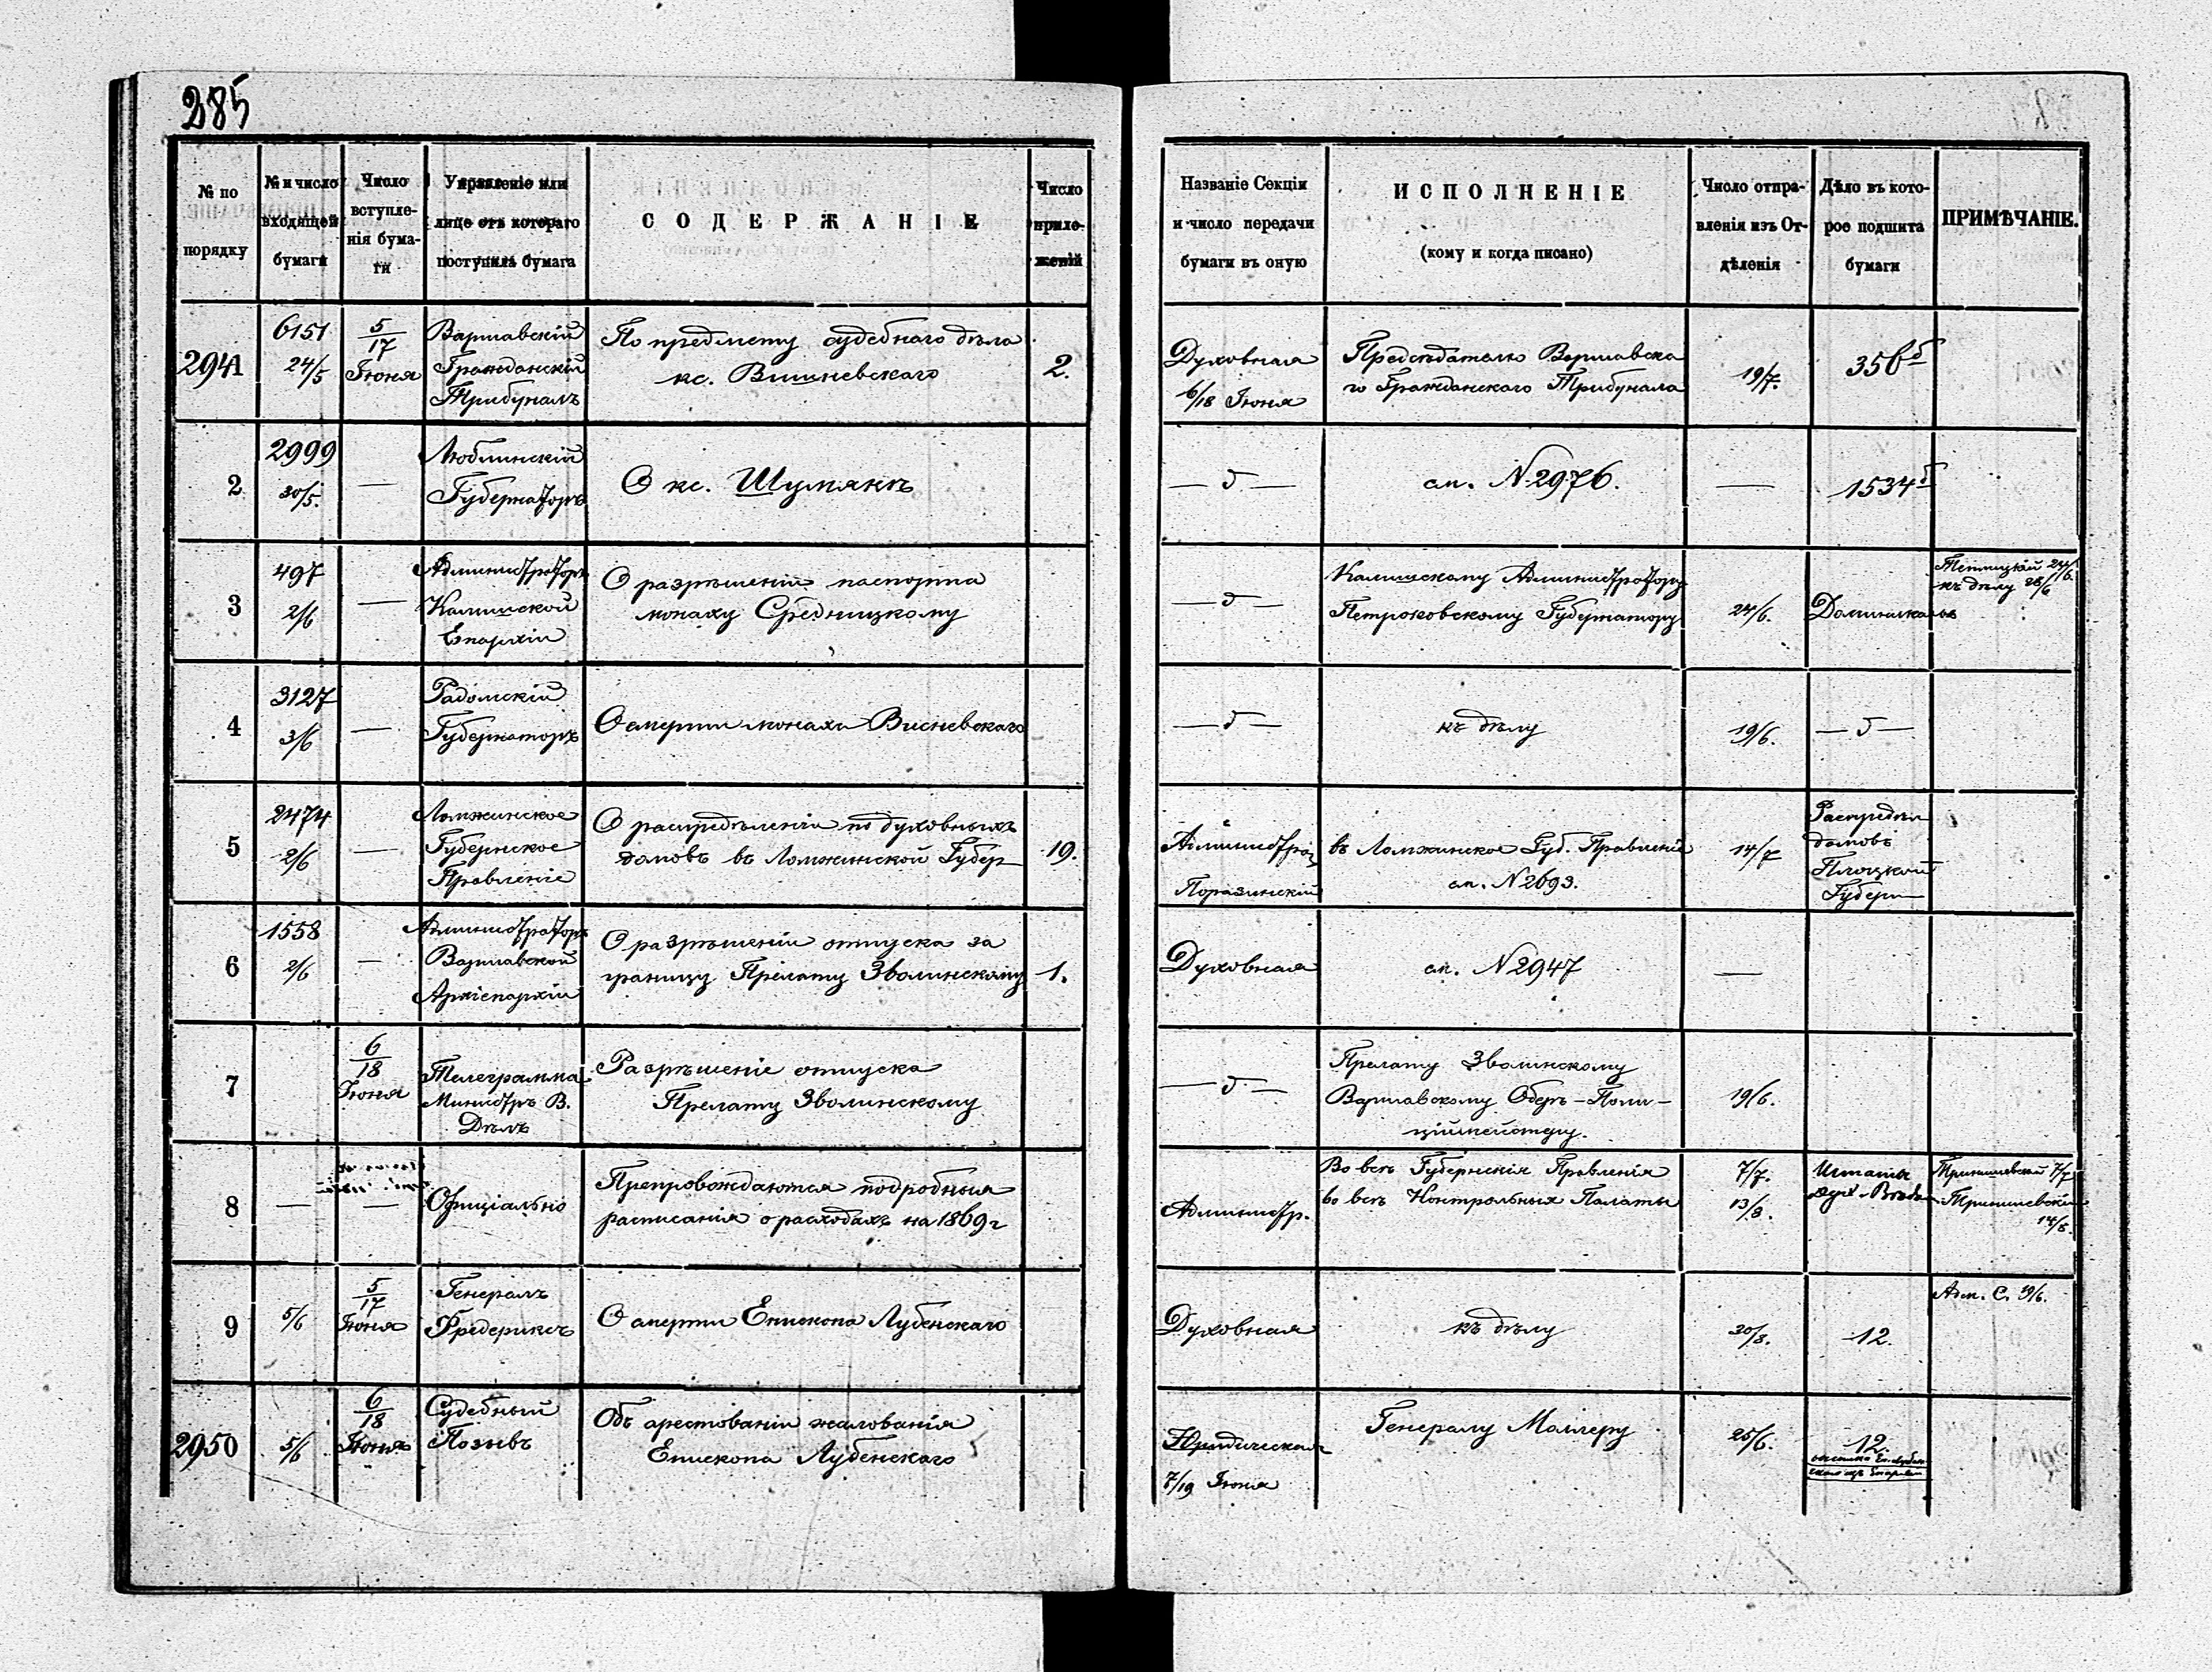 285
№ по порядку
№ и число входящей бумаги
Число вступле-нія бума-ги
Управленіе или лице отъ котораго поступила бумага
СОДЕРЖАНІЕ
Число приложеній
Названіе Секціи и число передачи бумаги въ оную
ИСПОЛНЕНІЕ
(кому и когда писано)
Число отпра-вленія изъ От-дѣленія
Дѣло въ кото-рое подшита бумага
ПРИМѢЧАНІЕ.
2941
6151
24/5
5/17 Іюня
Варшавскій
Гражданскій
Трибуналъ
По предмету судебнаго дѣла
кс. Вишневскаго
2.
Духовная
6/18 Іюня
Предсѣдателю Варшавска
го Гражданскаго Трибунала
19/7.
356б
2
2999
30/5.
—
Люблинскій
Губернаторъ
О кс. Шумякѣ
— д —
см. N 2976.
—
1534б
3
497
2/6
—
Администраторъ
Калишской
Епархіи
О разрѣшеніи паспорта
монаху Средницкому
— д —
Калишскому Администратору
Петроковскому Губернатору
24/6.
Доминикан
24/6.
къ дѣлу 28/6
4
3127
3/6
—
Радомскій
Губернаторъ
О смерти монаха Висневскаго
— д —
къ дѣлу
19/6.
— д —
5
2474
2/6
—
Ломжинское
Губернское
Правленіе
О распредѣленіи по духовныхъ
домовъ въ Ломжинской Губер
19.
Администрац
Поразинскій
въ Ломжинское Губ. Правленіе
см. N 2693.
14/7
Распредѣл
домовъ
Плоцкой
Губерн
6
1558
2/6
—
Администраторъ
Варшавской
Архіепархіи
О разрѣшеніи отпуска за
границу Прелату Зволинскому
1.
Духовная
см. N 2947
—
7
6/18 Іюня
Телеграмма
Министръ В.
Дѣлъ
Разрѣшеніе отпуска
Прелату Зволинскому
— д —
Прелату Зволинскому
Варшавскому Оберъ-Поли-
ціймейстеру.
19/6.
8
—
—
Офиціально
Препровождаются подробныя
расписанія о расходахъ на 1869 г
Администр.
Во всѣ Губернскія Правленія
во всѣ Контрольныя Палаты
7/7.
13/8.
Штаты
7/7
14/8.
9
5/6
5/17 Іюня
Генералъ
Фредериксъ
О смерти Епископа Лубенскаго
Духовная
къ дѣлу
30/8.
12.
Адм. С. 9/6.
2950
5/6
6/18 Іюня
Судебный
Позывъ
Объ арестованіи жалованія
Епископа Лубенскаго
Юридическая
7/19 Іюня
Генералу Моллеру
25/6.
12.